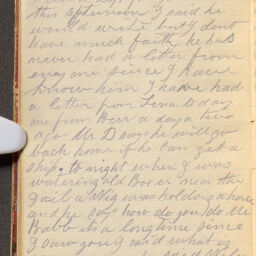 this afternoon I said he
would write but I dont
have much faith he has
never had a letter from
any one since I have
know him I have had
a letter from Lena to day
one from Bear a day or two
ago Mr D says he will go
back home if he can get a
ship. to night when I was
watering old Boxer near the
jail a Nig was holding a horse
and he says how do you do Mr
Babb its a long time since
I saw you I said what is